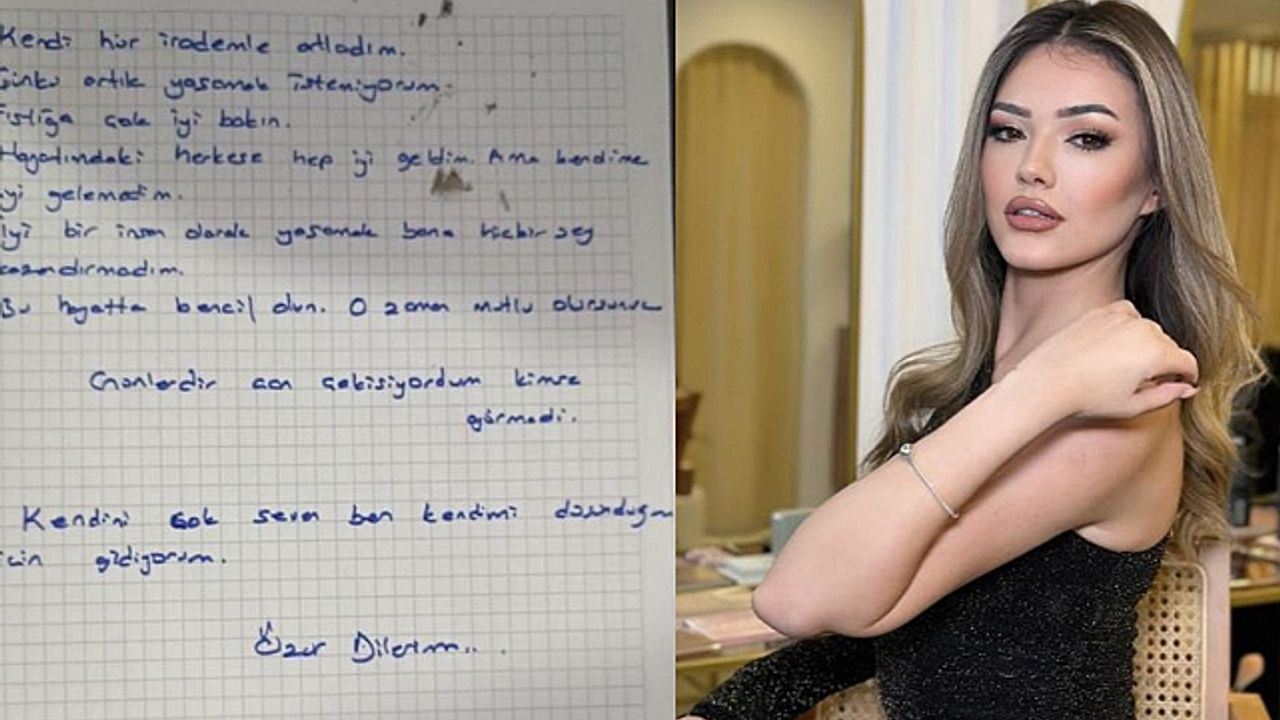 Kendi hür irademle atladım.
Çünkü artık yaşamak istemiyorum.
Fıstığa çok iyi bakın.
Hayatındaki herkese hep iyi geldim. Ama kendime
iyi gelemedim.
İyi bir insan olarak yaşamak bana hiçbir şey
kazandırmadım.
Bu hayatta bencil olun. O zaman mutlu olursunuz
Günlerdir can çekişiyordum kimse
görmedi.
Kendini çok seven ben kendimi düşündüğüm
için gidiyorum.
Özür Dilerim...